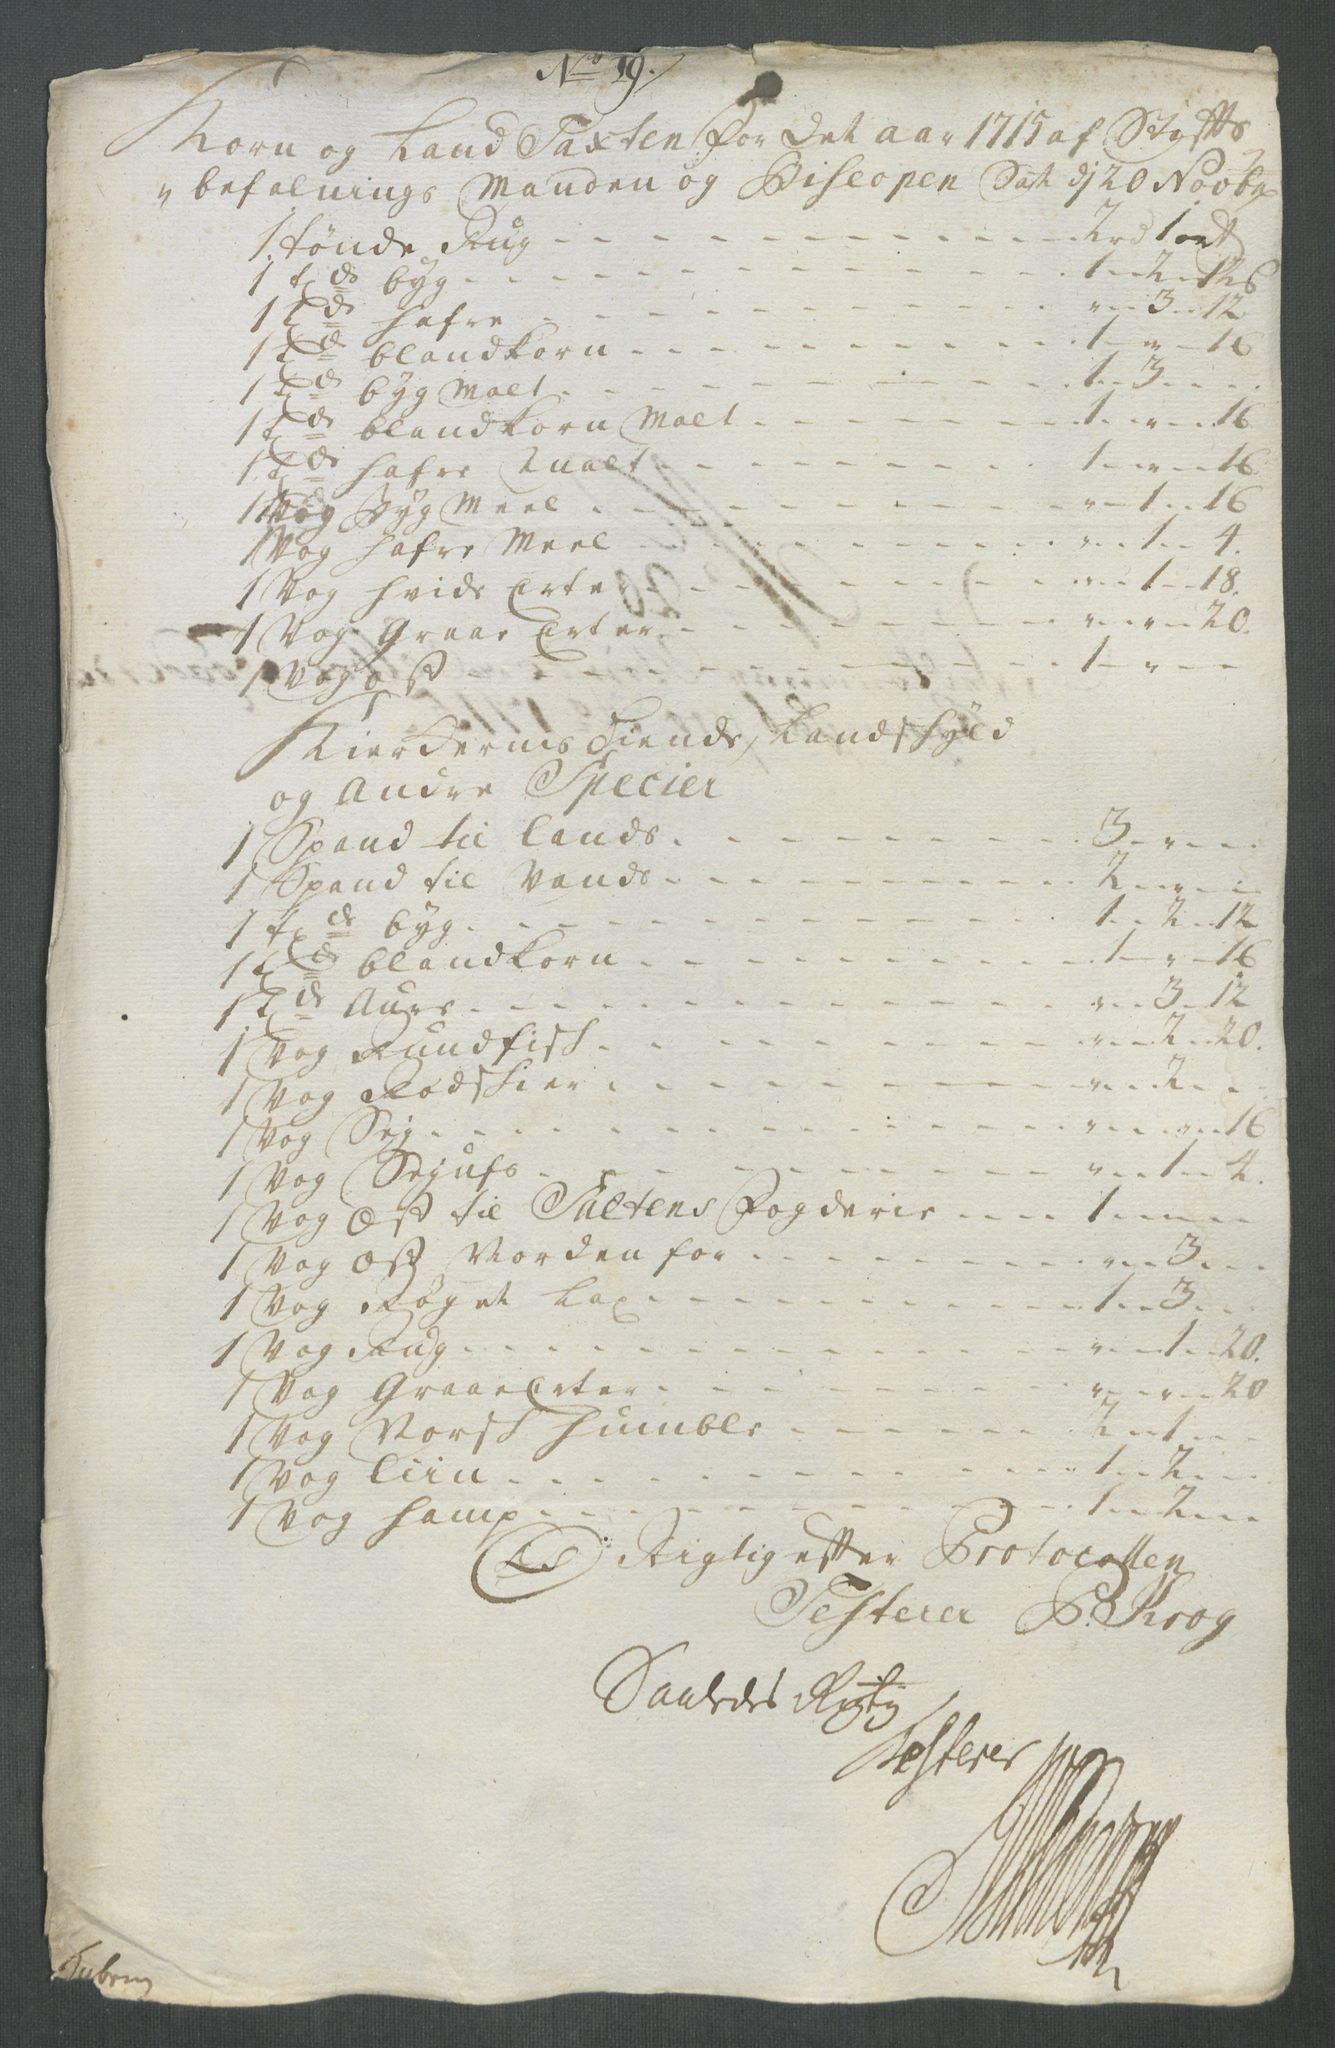 No 19.
Korn og Land Taxten for det aar 1715 af Stiffts
befalnings Manden og Biscopen Sat dj 20 Novbr
1 tønde Rug - - - 2 rd 1 ort
1 td byg - - - 1 - 2 - 12 s
1 td hafre - - - " - 3 - 12
1 td blandkorn - - - 1 - " - 16
1 td byg Malt - - - 1 - 3 - -
1 td blandkorn Malt - - - 1 - " - 16
1 td hafre Malt - - - 1 - " - 16
1 Vog Byg Meel - - - " - 1 - 16
1 Vog hafre Meel - - - " - 1 - 4.
1 Vog hvide Erter - - - " - 1 - 18.
1 Vog Graae Erter - - - " - " - 20.
1 Vog ost - - - 1 - " - -
Kierkernis Tiende, Landskyld
og Andre Specier
1 Spand til Lands - - - 3 - " - -
1 Spand til Vands - - - 2 - " - -
1 td byg - - - 1 - 2 - 12
1 td blandkorn - - - 1 - " - 16
1 td Aure - - - " - 3 - 12
1 Vog Rundfisk - - - " - 2 - 20.
1 Vog Rodskier - - - " - 2 - -
1 Vog Sej - - - " - " - 16
1 Vog Sejufs - - - " - 1 - 4.
1 Vog Ost til Saltens Fogderie - - - 1 - " - -
1 Vog Ost Norden for - - - " - 3 - -
1 Vog Røget Lax - - - 1 - 3 - -
1 Vog Rug - - - " - 1 - 20.
1 Vog Graae Erter - - - " - " - 20
1 Vog Norsk humble - - - 2 - 1 - -
1 Vog Liin - - - 1 - 2 - -
1 Vog hamp - - - 1 - 2 - -
LS Rigtig efter Protocollen
Testerer P. Krog
Saaledes Rigtig
Testerer